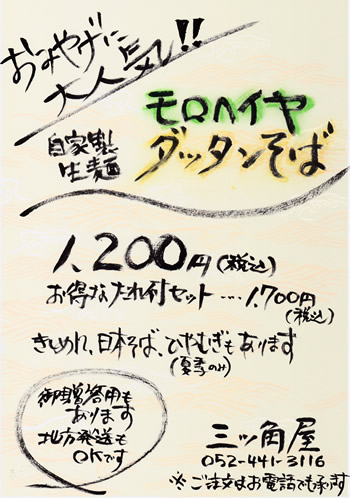 おみやげに
大人気!!
モロヘイヤ
自家製
生麺
ダッタンそば
1,200円(税込)
お得なたれ付セット…1,700円
(税込)
きしめん、日本そば、ひやむぎもあります
(夏季のみ)
御贈答用も
あります
地方発送も
OKです
三ツ角屋
052-441-3116
※ご注文はお電話でも承ります